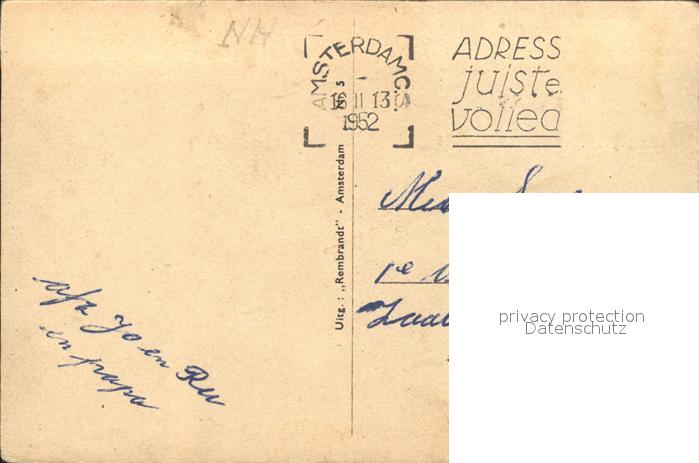 NH
AMSTERDAM C.S
16 II 13
1952
ADRESS
juiste
volled
Uitg.: „Rembrandt" - Amsterdam
1e
privacy protection
Datenschutz
afz Jo en Ru
en papa